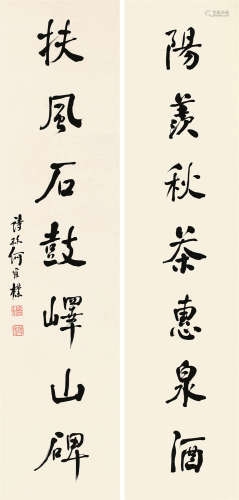 陽羨秋茶惠泉酒
扶風石鼓嶧山碑
詩孫何維樸